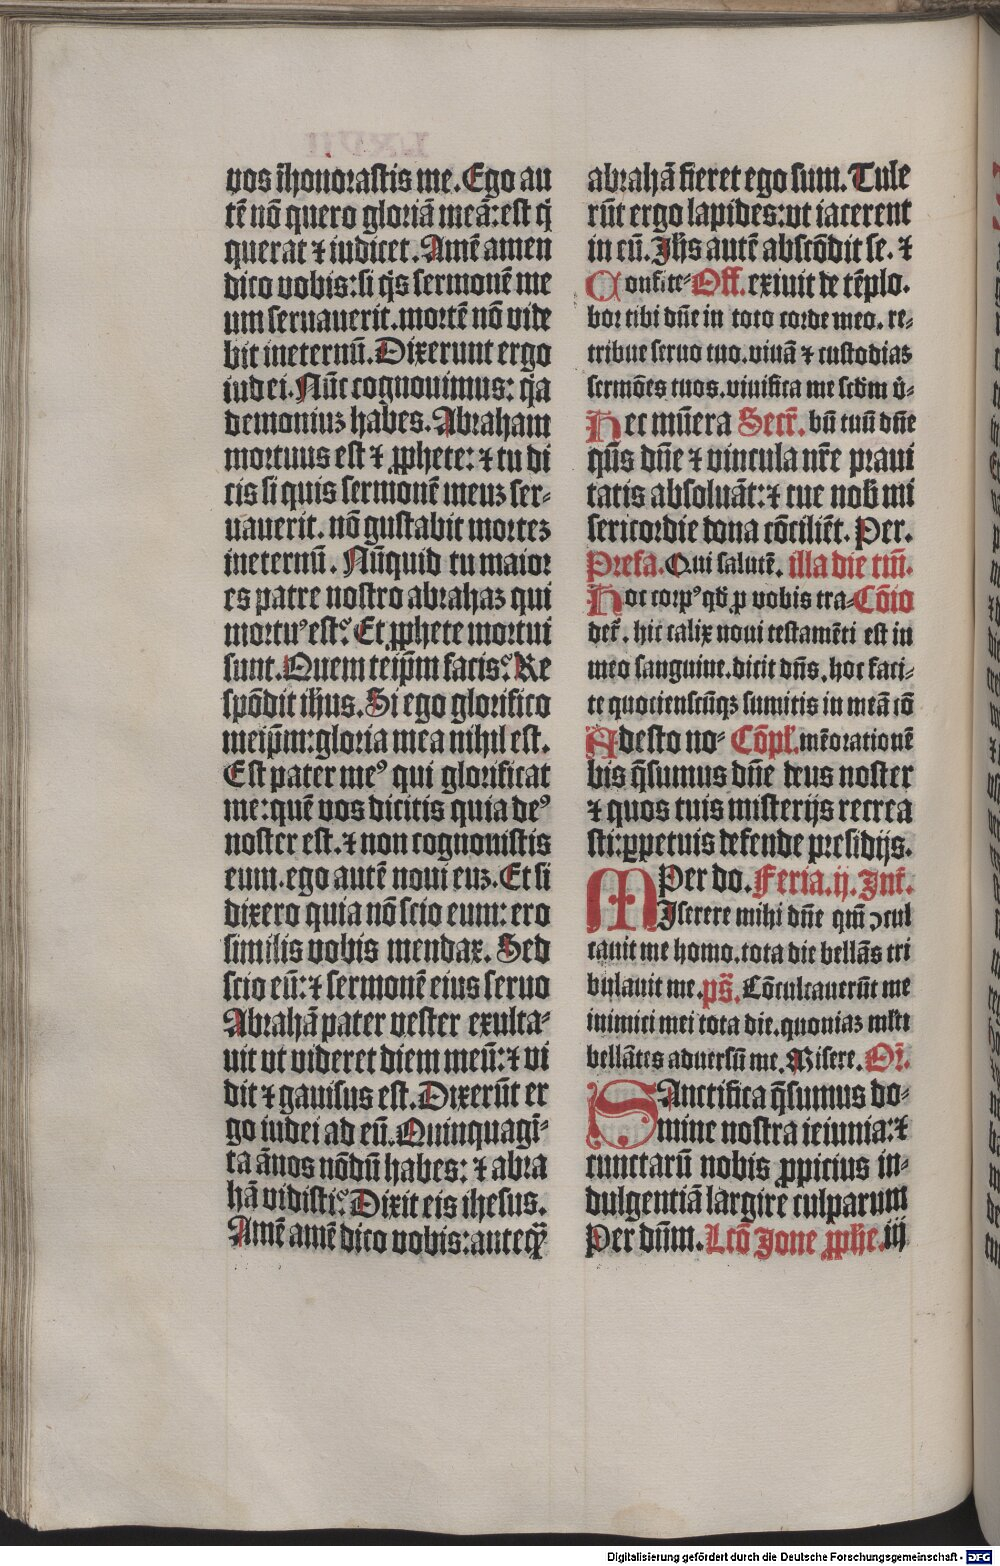 vos īhonorastis me. Ego au
tē nō quero gloriā meā: est q̄
querat ⁊ iudicet. Amē amen
dico vobis: si q̄s sermonē me
um seruauerit. mortē nō vide
bit ineternū. Dixerunt ergo
iudei. Nūc cognouimus: q̄a
demoniuꝫ habes. Abraham
mortuus est ⁊ ꝓphete: ⁊ tu di
cis si quis sermonē meuꝫ ser-
uauerit. nō gustabit morteꝫ
ineternū. Nūquid tu maior
es patre nostro abrahaꝫ qui
mortu⁹ est? Et ꝓphete mortui
sunt. Quem teip̄m facis? Re
spōdit ihus. Si ego glorifico
meip̄m: gloria mea nihil est.
Est pater me⁹ qui glorificat
me: quē vos dicitis quia de⁹
noster est. ⁊ non cognouistis
eum. ego autē noui euꝫ. Et si
dixero quia nō scio eum: ero
similis vobis mendax. Sed
scio eū: ⁊ sermonē eius seruo
Abrahā pater vester exulta-
uit vt videret diem meū: ⁊ vi
dit ⁊ gauisus est. Dixerūt er
go iudei ad eū. Quinquagī-
ta ānos nōdū habes: ⁊ abra
hā vidisti? Dixit eis ihesus.
Amē amē dico vobis: anteq̄ꝫ
abrahā fieret ego sum. Tule
rūt ergo lapides: vt iacerent
in eū. Jhs autē abscōdit se. ⁊
Confite- Off. exiuit de tēplo.
bor tibi dn̄e in toto corde meo. re-
tribue seruo tuo. viuā ⁊ custodiaꝫ
sermōes tuos. viuifica me scd̄m v̄-
Hec mūera Secr̄. bū tuū dn̄e
q̄s dn̄e ⁊ vincula nr̄e praui
tatis absoluāt: ⁊ tue nob̄ mi
sericordie dona cōciliēt. Per.
Prefa. Qui salutē. illa die tm̄.
Hoc corp⁹ qd̄ ꝓ vobis tra- Cōio
det̄. hic calix noui testamēti est in
meo sanguine. dicit dn̄s. hoc faci-
te quotiescūqꝫ sumitis in meā cō
Adesto no- Cōpl̄. mēorationē
bis q̄sumus dn̄e deus noster
⁊ quos tuis misterijs recrea
sti: ꝑpetuis defende presidijs.
Per do. Feria. ij. Int̄.
MIserere mihi dn̄e qm̄ ꝯcul
cauit me homo. tota die bellās tri
bulauit me. ps̄. Cōculcauerūt me
inimici mei tota die. quoniaꝫ ml̄ti
bellātes aduersū me. Misere. Or̄.
SAnctifica q̄sumus do-
mine nostra ieiunia: ⁊
cunctarū nobis ꝓpicius in-
dulgentiā largire culparum
Per dūm. Lcō Jone ꝓphe. iij
Digitalisierung gefördert durch die Deutsche Forschungsgemeinschaft - DFG